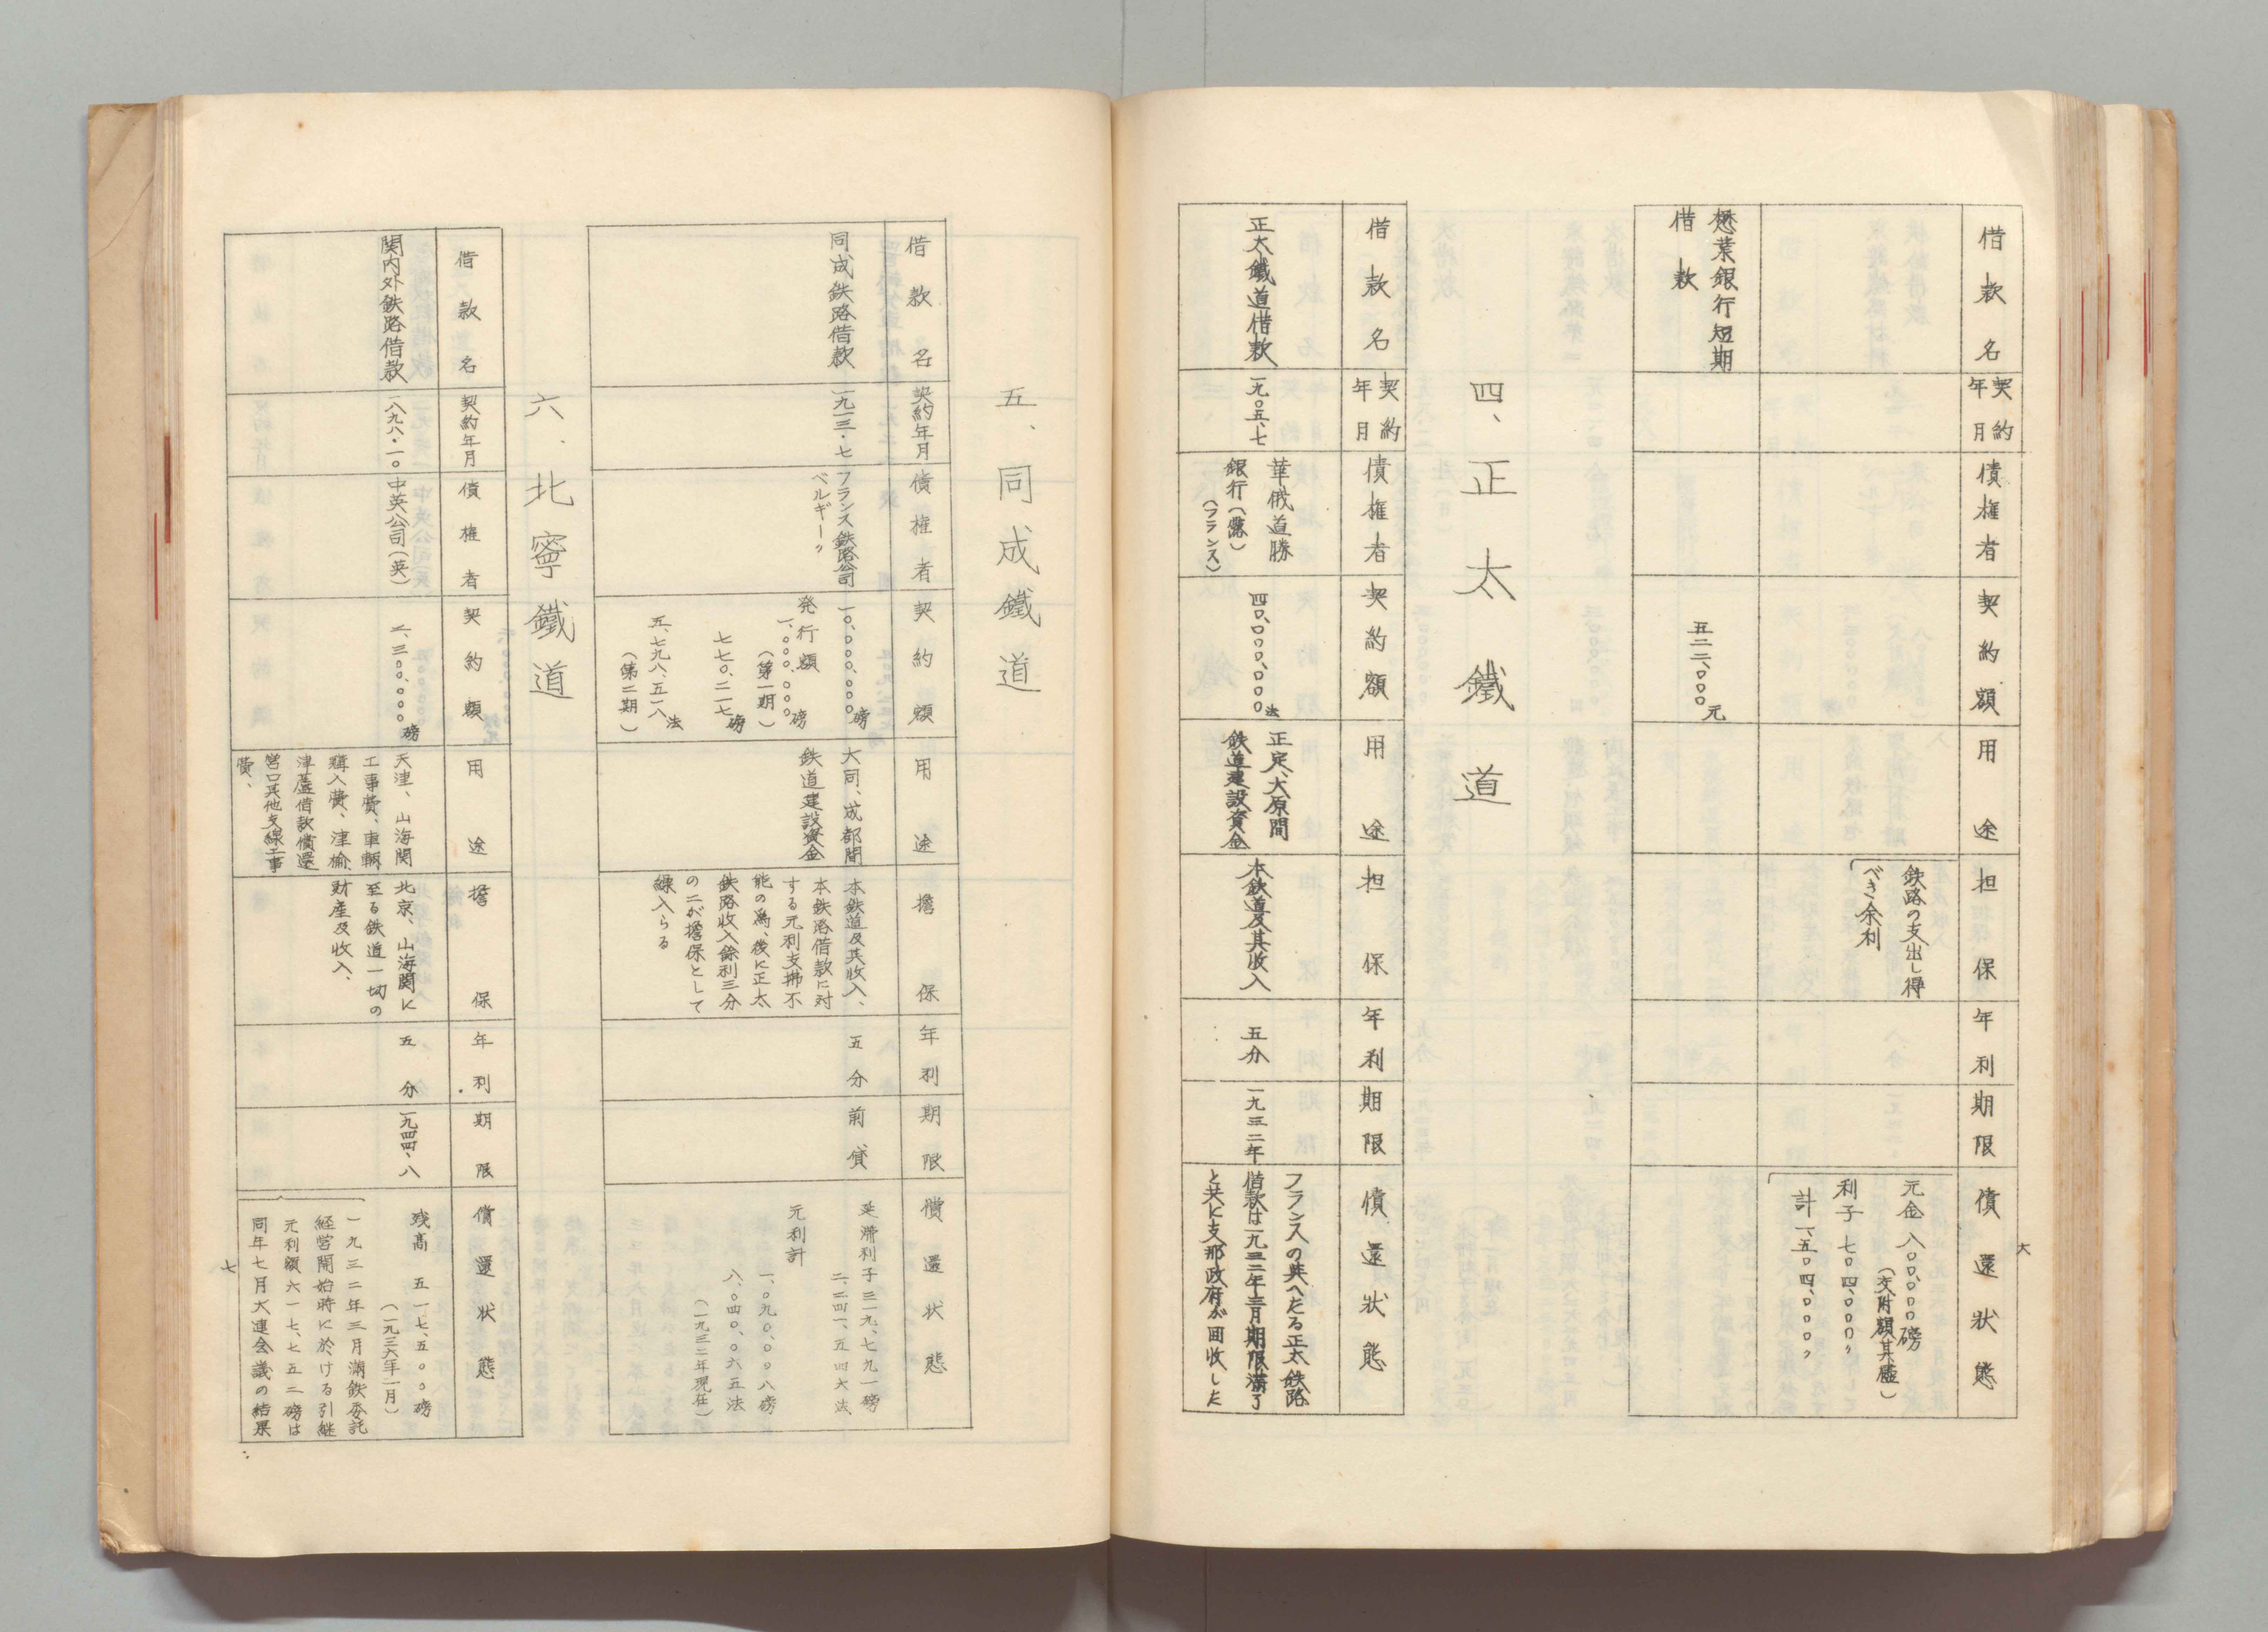 借款名
契約年月
債権者
契約額
用途
担保
年利
期限
償還状態
鉄路の支出し得
べき余利
元金 八〇〇、〇〇〇磅
(交附額其儘)
利子 七〇四、〇〇〇〃
計 一、五〇四、〇〇〇〃
懋業銀行短期
借款
五二二、〇〇〇元
六
四、正太鐵道
借款名
契約年月
債権者
契約額
用途
担保
年利
期限
償還狀態
正太鐵道借款
一九〇五、七
華俄道勝
銀行(露)
(フランス)
四〇、〇〇〇、〇〇〇法
正定、大原間
鉄道建設資金
本鉄道及其收入
五分
一九三二年
フランスの與へたる正太鉄路
借款は一九三二年三月期限満了
と共に支那政府が回收した
五、同成鐵道
借款名
契約年月
債権者
契約額
用途
擔保
年利
期限
償還状態
同成鉄路借款
一九一三・七
フランス鉄路公司
ベルギー〃
一〇、〇〇〇、〇〇〇磅
発行額
一、〇〇〇、〇〇〇磅
(第一期)
七七〇、二一七磅
五、七九八、五一八法
(第二期)
大同、成都間
鉄道建設資金
本鉄道及其收入、
本鉄路借款に対
する元利支拂不
能の爲、後に正太
鉄路收入餘利三分
の二が擔保として
繰入らる
五分
前貸
延滞利子 三一九、七九一磅
二、二四一、五四六法
元利計
一、〇九〇、〇〇八磅
八、〇四〇、〇六五法
(一九三二年現在)
六、北寧鐵道
借款名
契約年月
債権者
契約額
用途
擔保
年利
期限
償還状態
関内外鉄路借款
一八九八・一〇
中英公司(英)
二、三〇〇、〇〇〇磅
天津、山海関
工事費、車輌
購入費、津楡、
津蘆借款償還
営口其他支線工事
費、
北京、山海関に
至る鉄道一切の
財産及收入、
五分
一九四四、八
残高 五一七、五〇〇磅
(一九三六年一月)
一九三二年三月満鉄委託
経営開始時に於ける引継
元利額六一七、七五二磅は
同年七月大連会議の結果
七